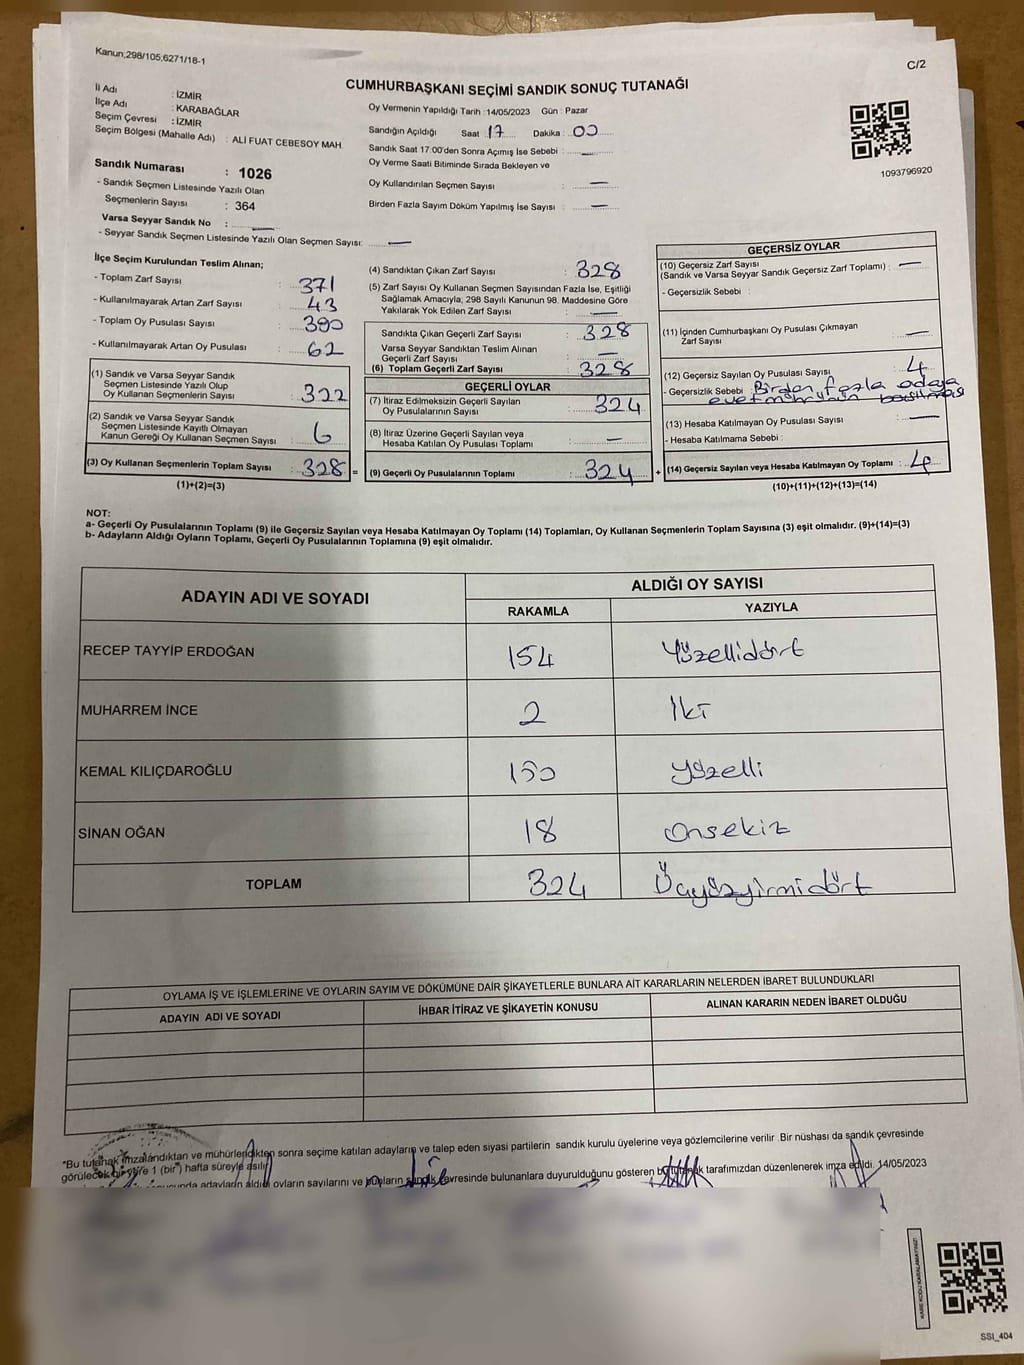 Kanun;298/105;6271/18-1
C/2
CUMHURBAŞKANI SEÇİMİ SANDIK SONUÇ TUTANAĞI
İl Adı : İZMİR
İlçe Adı : KARABAĞLAR
Seçim Çevresi : İZMİR
Seçim Bölgesi (Mahalle Adı) : ALİ FUAT CEBESOY MAH.
Sandık Numarası : 1026
- Sandık Seçmen Listesinde Yazılı Olan
Seçmenlerin Sayısı : 364
Varsa Seyyar Sandık No : —
- Seyyar Sandık Seçmen Listesinde Yazılı Olan Seçmen Sayısı: —
Oy Vermenin Yapıldığı Tarih :14/05/2023 Gün : Pazar
Sandığın Açıldığı Saat 17 Dakika : 00
Sandık Saat 17:00'den Sonra Açımış İse Sebebi : —
Oy Verme Saati Bitiminde Sırada Bekleyen ve
Oy Kullandırılan Seçmen Sayısı : —
Birden Fazla Sayım Döküm Yapılmış İse Sayısı : —
1093796920
İlçe Seçim Kurulundan Teslim Alınan;
- Toplam Zarf Sayısı : 371
- Kullanılmayarak Artan Zarf Sayısı : 43
- Toplam Oy Pusulası Sayısı : 390
- Kullanılmayarak Artan Oy Pusulası : 62
(1) Sandık ve Varsa Seyyar Sandık
Seçmen Listesinde Yazılı Olup
Oy Kullanan Seçmenlerin Sayısı : 322
(2) Sandık ve Varsa Seyyar Sandık
Seçmen Listesinde Kayıtlı Olmayan
Kanun Gereği Oy Kullanan Seçmen Sayısı : 6
(3) Oy Kullanan Seçmenlerin Toplam Sayısı : 328 =
(1)+(2)=(3)
(4) Sandıktan Çıkan Zarf Sayısı : 328
(5) Zarf Sayısı Oy Kullanan Seçmen Sayısından Fazla İse, Eşitliği
Sağlamak Amacıyla, 298 Sayılı Kanunun 98. Maddesine Göre
Yakılarak Yok Edilen Zarf Sayısı : —
Sandıkta Çıkan Geçerli Zarf Sayısı : 328
Varsa Seyyar Sandıktan Teslim Alınan
Geçerli Zarf Sayısı : —
(6) Toplam Geçerli Zarf Sayısı : 328
GEÇERLİ OYLAR
(7) İtiraz Edilmeksizin Geçerli Sayılan
Oy Pusulalarının Sayısı : 324
(8) İtiraz Üzerine Geçerli Sayılan veya
Hesaba Katılan Oy Pusulası Toplamı : —
(9) Geçerli Oy Pusulalarının Toplamı : 324 +
GEÇERSİZ OYLAR
(10) Geçersiz Zarf Sayısı
(Sandık ve Varsa Seyyar Sandık Geçersiz Zarf Toplamı) : —
- Geçersizlik Sebebi :
(11) İçinden Cumhurbaşkanı Oy Pusulası Çıkmayan
Zarf Sayısı : —
(12) Geçersiz Sayılan Oy Pusulası Sayısı : 4
- Geçersizlik Sebebi : Birden fazla adaya
evet mührünün basılması
(13) Hesaba Katılmayan Oy Pusulası Sayısı : —
- Hesaba Katılmama Sebebi :
(14) Geçersiz Sayılan veya Hesaba Katılmayan Oy Toplamı : 4
(10)+(11)+(12)+(13)=(14)
NOT:
a- Geçerli Oy Pusulalarının Toplamı (9) ile Geçersiz Sayılan veya Hesaba Katılmayan Oy Toplamı (14) Toplamları, Oy Kullanan Seçmenlerin Toplam Sayısına (3) eşit olmalıdır. (9)+(14)=(3)
b- Adayların Aldığı Oyların Toplamı, Geçerli Oy Pusulalarının Toplamına (9) eşit olmalıdır.
ADAYIN ADI VE SOYADI ALDIĞI OY SAYISI
RAKAMLA YAZIYLA
RECEP TAYYİP ERDOĞAN 154 Yüzellidört
MUHARREM İNCE 2 İki
KEMAL KILIÇDAROĞLU 150 Yüzelli
SİNAN OĞAN 18 Onsekiz
TOPLAM 324 Üçyüzyirmidört
OYLAMA İŞ VE İŞLEMLERİNE VE OYLARIN SAYIM VE DÖKÜMÜNE DAİR ŞİKAYETLERLE BUNLARA AİT KARARLARIN NELERDEN İBARET BULUNDUKLARI
ADAYIN ADI VE SOYADI İHBAR İTİRAZ VE ŞİKAYETİN KONUSU ALINAN KARARIN NEDEN İBARET OLDUĞU
*Bu tutanak imzalandıktan ve mühürlendikten sonra seçime katılan adayların ve talep eden siyasi partilerin sandık kurulu üyelerine veya gözlemcilerine verilir .Bir nüshası da sandık çevresinde
görülecek bir yere 1 (bir ) hafta süreyle asılır.
adayların aldığı oyların sayılarını ve bunların sandık çevresinde bulunanlara duyurulduğunu gösteren bu tutanak tarafımızdan düzenlenerek imza edildi. 14/05/2023
KARE KODU KARALAMAYINIZ!
SSI_404